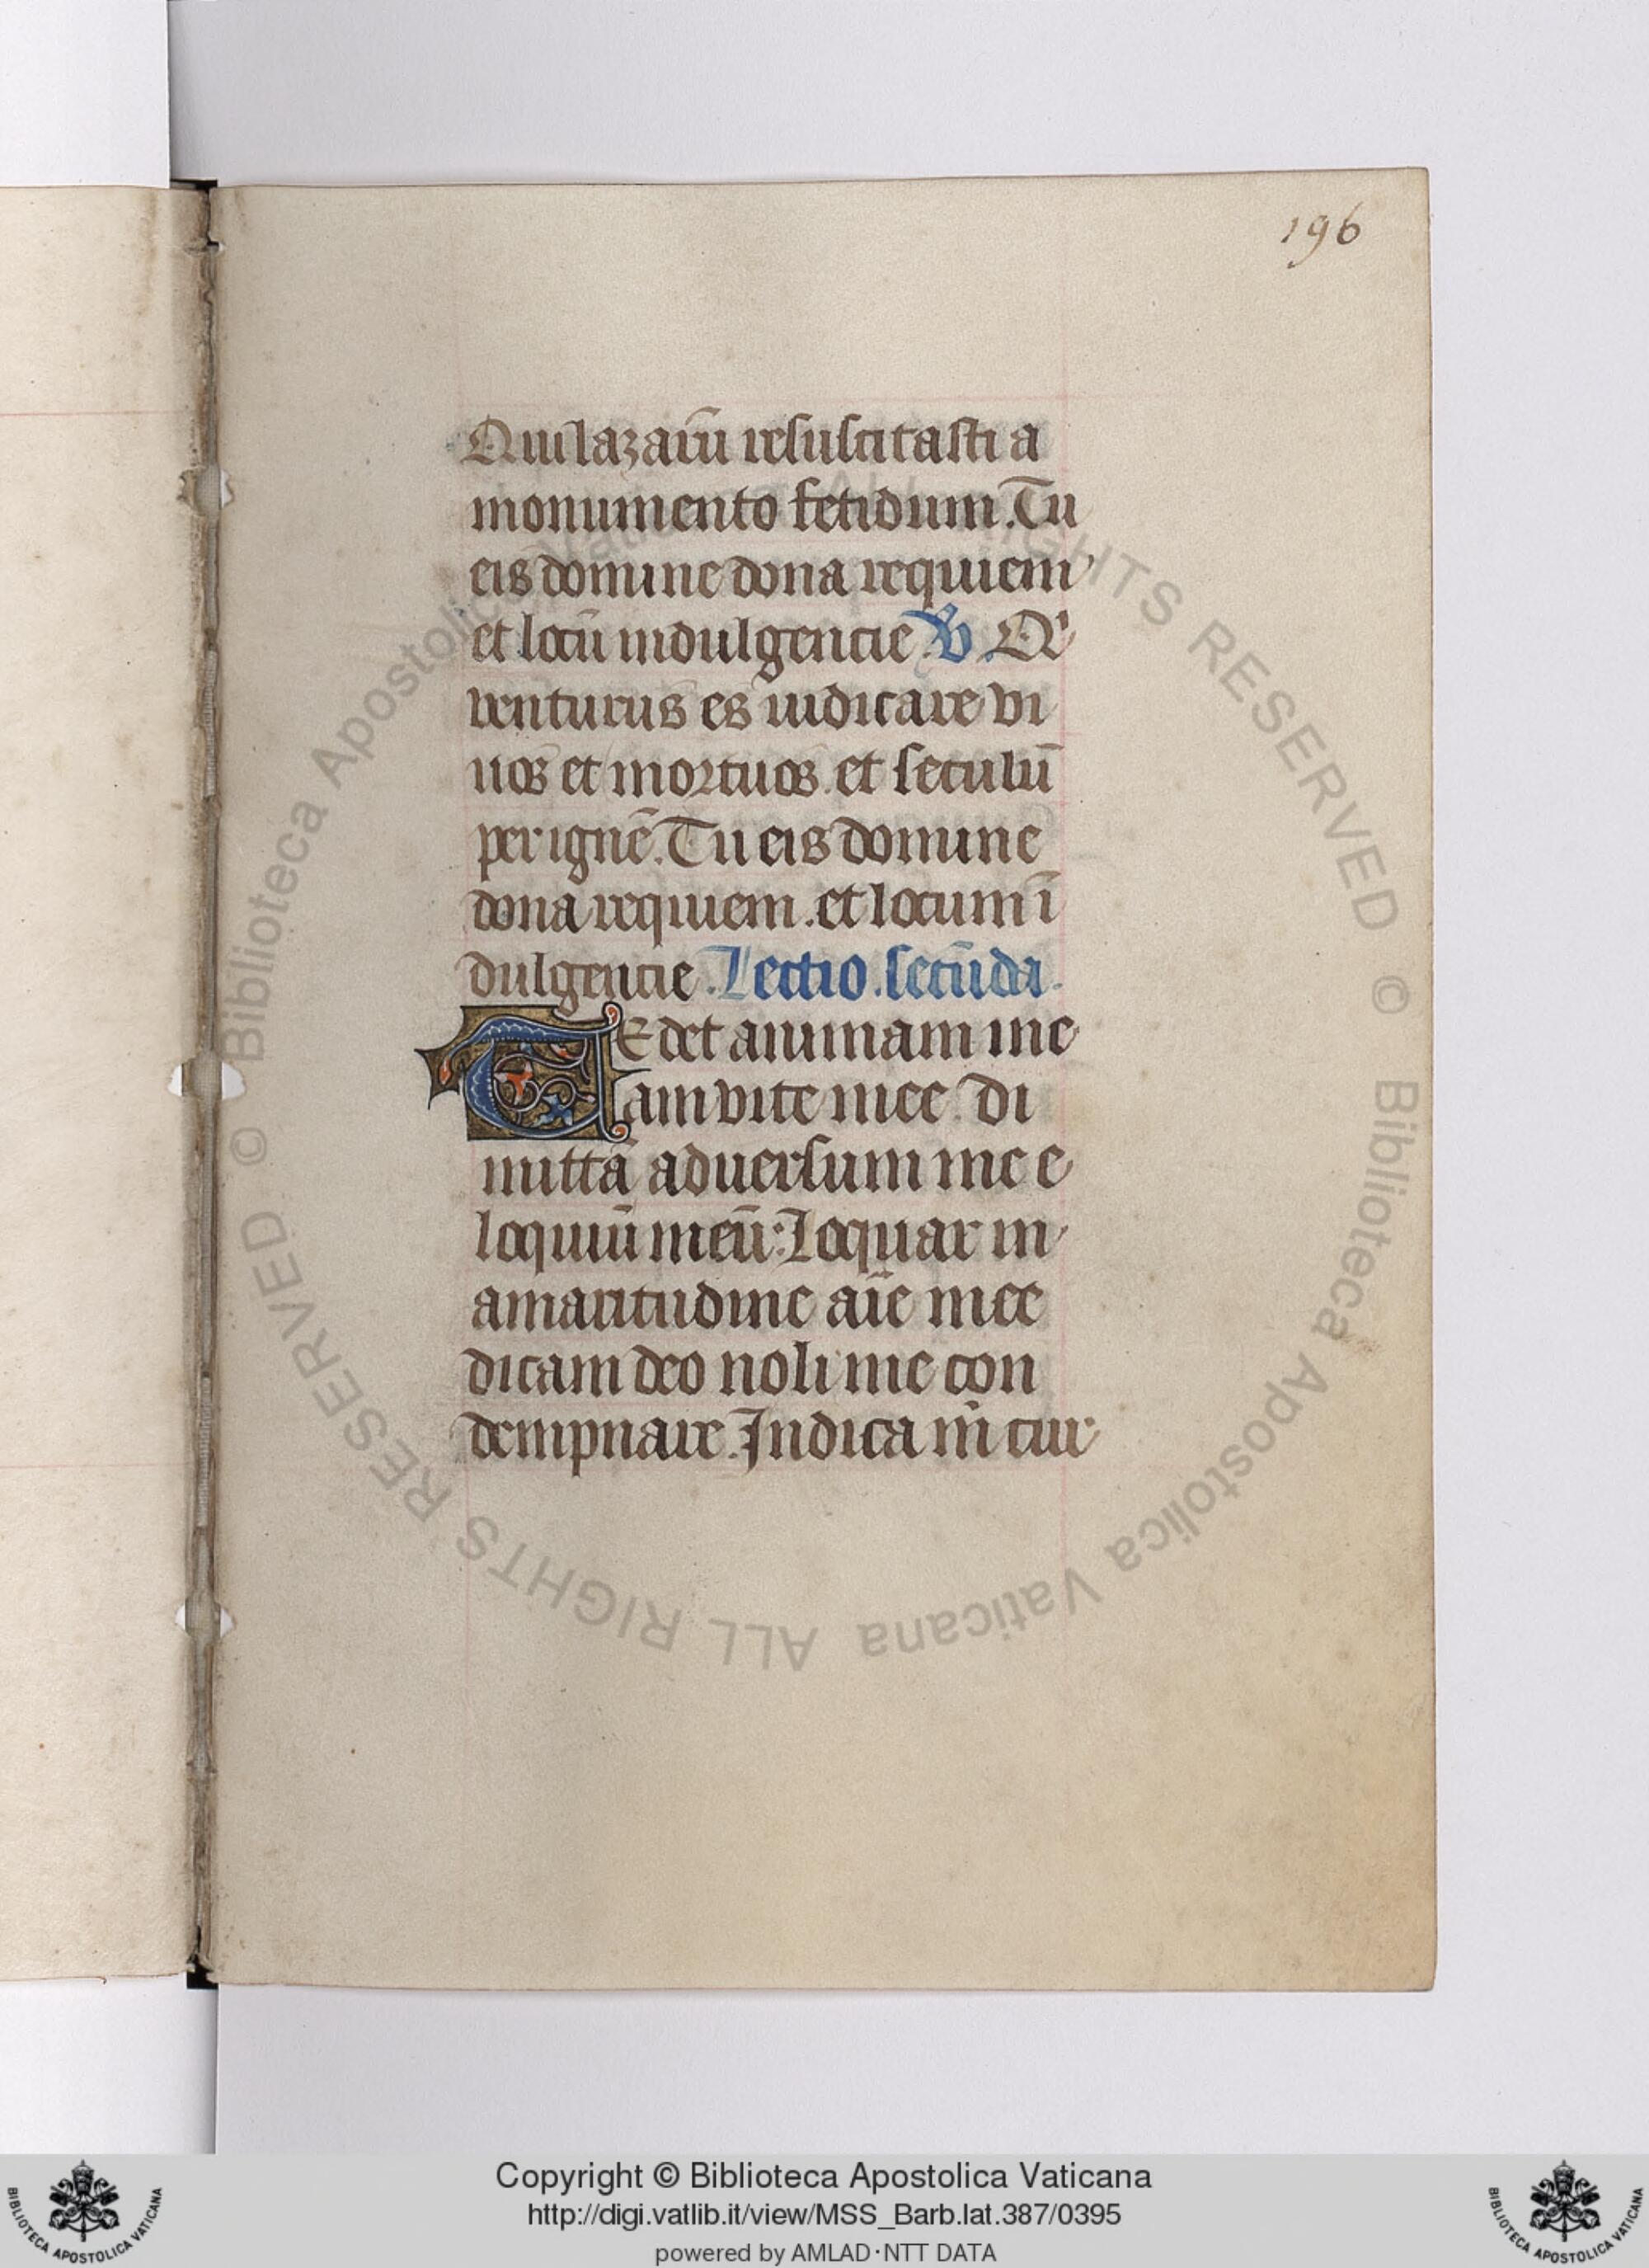 196
Qui lazarū resuscitasti a
monumento fetidum. Tu
eis domine dona requiem
et locū indulgencie. V̷. Qi
venturus es iudicare vi
uos et mortuos. et seculū
per ignē. Tu eis domine
dona requiem. et locum ī
dulgencie. Lectio. secūda.
TEdet animam me
am vite mee. di
mittā aduersum me e
loquiū meū: Loquar in
amaritudine aīe mee
dicam deo noli me con
dempnare. Indica m̄ cur
© Biblioteca Apostolica Vaticana ALL RIGHTS RESERVED © Biblioteca Apostolica Vaticana ALL RIGHTS RESERVED
Copyright © Biblioteca Apostolica Vaticana
http://digi.vatlib.it/view/MSS_Barb.lat.387/0395
powered by AMLAD·NTT DATA
BIBLIOTECA APOSTOLICA VATICANA
BIBLIOTECA APOSTOLICA VATICANA